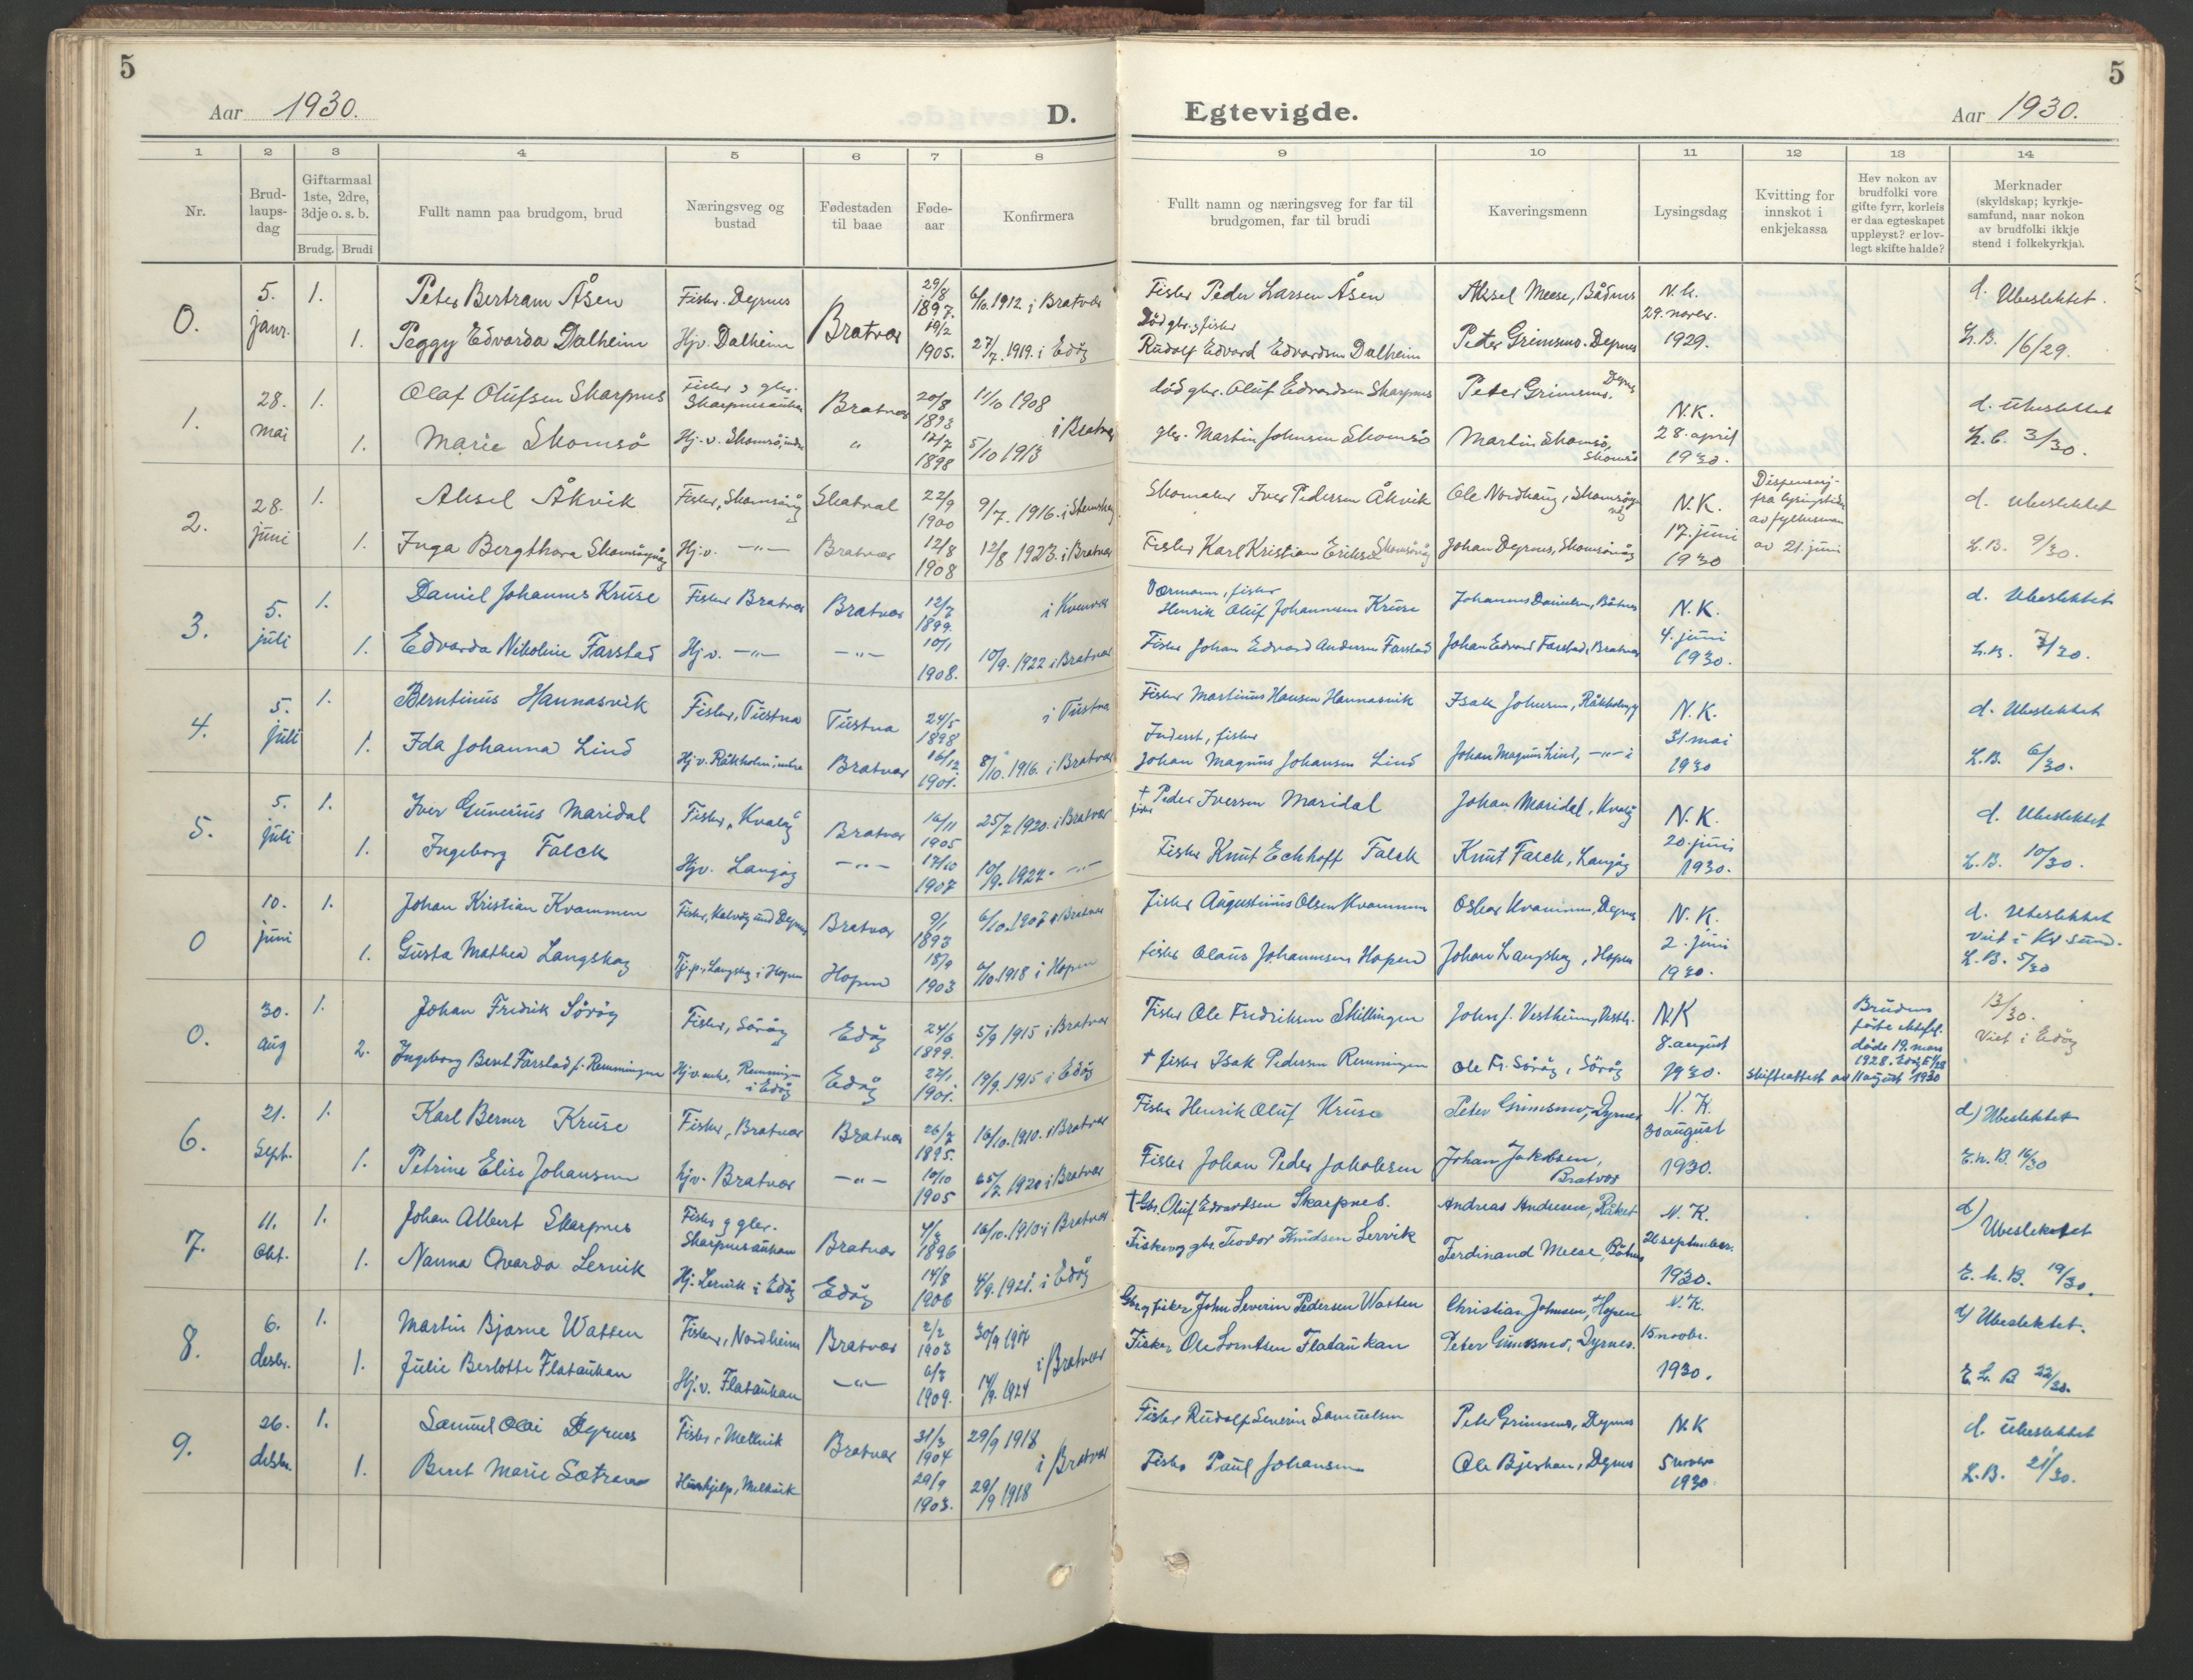 5
Aar 1930. D.
1 2 3 4 5 6 7 8
Nr. Brud-laups-dag Giftarmaal 1ste, 2dre, 3dje o. s. b. Brudg. Brudi Fullt namn paa brudgom, brud Næringsveg og bustad Fødestaden til baae Føde-aar Konfirmera
0. 5. janr. 1. Peter Bertram Åsen Fisker. Dyrnes Bratvær 29/8 1897. 6/10. 1912. i Bratvær
1. Peggy Edvarda Dalheim Hjv. Dalheim 19/2 1905. 27/7. 1919. i Edöy
1. 28. mai 1. Olaf Olufsen Skarpnes Fisker g gbr. Skarpnesaukan Bratvær 20/8 1893 11/10 1908
1. Marie Skomsö Hj.v. Skomsö, indre " 12/7 1898 5/10 1913 i Bratvær
2. 28. juni 1. Aksel Åkvik Fisker, Skomsöyvåg Skatval 22/9 1900 9/7. 1916. i Stemshaug
1. Inga Bergthora Skomsöyvåg Hj.v. —"— Bratvær 12/8 1908 12/8 1923. i Bratvær
3. 5. juli 1. Daniel Johannes Kruse Fisker Bratvær Bratvær 12/7 1899. i Kvenvær
1. Edvarda Nikoline Farstad Hj.v. —"— —"— 10/1 1908. 10/9. 1922 i Bratvær
4. 5. juli 1. Berntinus Hannasvik Fisker, Tustna Tustna 24/5 1898 i Tustna
1. Ida Johanna Lind Hj.v. Råkholm, indre Bratvær 16/12 1901. 8/10. 1916. i Bratvær
5. 5. juli 1. Iver Gunerius Maridal Fisker, Kvalöy Bratvær 16/11 1905 25/7. 1920. i Bratvær
1. Ingeborg Falck Hjv. Langöy —"— 17/10 1907 10/9. 1922. —"—
0 10. juni 1. Johan Kristian Kvammen Fisker, Kalvöy und Dyrnes Bratvær 9/1 1893 6/10. 1907 i Bratvær
1. Gusta Mathea Langskag Tj.p., Langskag i Hopen Hopen 18/9 1903 6/10. 1918 i Hopen
0. 30. aug 1. Johan Fredrik Söröy Fisker, Söröy Edöy 24/6 1899. 5/9 1915 i Bratvær
2. Ingeborg Berit Farstad f. Remmingen Hj.v. enke, Remmingen i Edöy Edöy 22/1 1901. 19/9. 1915 i Edöy
6. 21. Sept. 1. Karl Berner Kruse Fisker, Bratvær Bratvær 26/7 1895. 16/10. 1910. i Bratvær
1. Petrine Elise Johansen hjv. Bratvær —"— 10/10 1905 25/7. 1920 i Bratvær
7. 11. Okt. 1. Johan Albert Skarpnes Fisker g gbr. Skarpnesaukan Bratvær 4/3 1896 16/10. 1910 i Bratvær
1. Nanna Ovarda Lervik Hj. Lervik i Edöy Edöy 14/8 1906 4/9. 1921. i Edöy
8. 6. desbr. 1. Martin Bjarne Watten Fisker, Nordheim Bratvær 2/2 1903 30/9 1917
1. Julie Berlotte Flataukan Hj.v. Flataukan —"— 6/7 1909. 14/9. 1924 i Bratvær
9. 26. desbr. 1. Samuel Olai Dyrnes Fisker, Melkvik Bratvær 31/3 1904 29/9 1918
1. Beret Marie Sætran Huushjelp, Melkvik 29/9 1903. 29/9 1918 i Bratvær
5
Egtevigde. Aar 1930.
9 10 11 12 13 14
Fullt namn og næringsveg for far til brudgomen, far til brudi Kaveringsmenn Lysingsdag Kvitting for innskot i enkjekassa Hev nokon av brudfolki vore gifte fyrr, korleis er daa egteskapet uppløyst? er lov-legt skifte halde? Merknader (skyldskap; kyrkje-samfund, naar nokon av brudfolki ikkje stend i folkekyrkja).
Fisker Peder Larsen Åsen Aksel Meese, Båtnes N.K. 29. novbr. 1929. d. Ubeslektet.
Död gbr. g fisker Rudolf Edvard Edvardsen Dalheim Peter Grimsmo. Dyrnes L.B. 16/29.
död gbr. Oluf Edvardsen Skarpnes Peter Grimsmo. Dyrnes N.K. 28. april 1930. d. Ubeslektet
gbr. Martin Johnsen Skomsö Martin Skomsö, Skomsö L.B. 3/30.
Skomaker Iver Pedersen Åkvik Ole Nordhaug, Skomsöyvåg N.K. 17. juni 1930 Dispensasj. fra lysingstida av fylkesman av 21. juni d. Ubeslektet
Fisker Karl Kristian Eriksen Skomsövåg Johan Dyrnes, Skomsövåg L.B. 9/30.
Værmann, fisker Henrik Oluf Johannesen Kruse Johannes Danielsen, Båtnes N.K. 4. juni 1930. d. Ubeslektet
Fisker Johan Edvard Andersen Farstad Johan Edvard Farstad, Bratvær L.B. 7/30.
Fisker Martinus Hansen Hannasvik Isak Johnsen, Råkholmen N.K. 31 mai 1930 d. Ubeslektet
Inderst, fisker Johan Magnus Johansen Lind Johan Magnus Lind, —"— L.B. 6/30.
† fisker Peder Iversen Maridal Johan Maridal, Kvalöy N.K. 20. juni 1930. d. Ubeslektet
Fisker Knut Eckhoff Falck Knut Falck, Langöy L.B. 10/30.
Fisker Augustinus Olsen Kvammen Oskar Kvammen, Dyrnes N.K. 2. juni 1930. d. Ubeslektet Viet i Kr sund.
fisker Olaus Johannesen Hopen Johan Langskag, Hopen L.B. 5/30
Fisker Ole Fredriksen Skillingen John J. Vestheim, N.K 8. august 1930. Skifteattest av 11 august 1930 Brudens förste ektefel. döde 19. mars 1928. 13/30. Viet i Edöy
† fisker Isak Pedersen Remmingen Ole Fr. Söröy, Söröy
Fisker Henrik Oluf Kruse Peter Grimsmo, Dyrnes N.K. 30 august 1930. d) Ubeslektet
Fisker Johan Peder Jakobsen Johan Jakobsen, Bratvær E.h.B. 16/30
† Gbr. Oluf Edvardsen Skarpnes. Andreas Andresen, Råket N.K. 21 september. 1930. d) Ubeslektet
Fisker og gbr. Teodor Knudsen Lervik Ferdinand Meese, Båtnes E.h.B. 19/30.
Gbr. g fisker John Severin Pedersen Watten Christian Johnsen, Hopen N.K. 15 novbr. 1930. d) Ubeslektet.
Fisker Ole Lorntsen Flataukan Peter Grimsmo, Dyrnes. E.L.B 22/30.
Fisker Rudolf Severin Samuelsen Peter Grimsmo, Dyrnes N.K 5 novbr 1930. d. Ubeslektet
Fisker Paul Johansen Ole Bjerkan, Dyrnes L.B. 21/30.